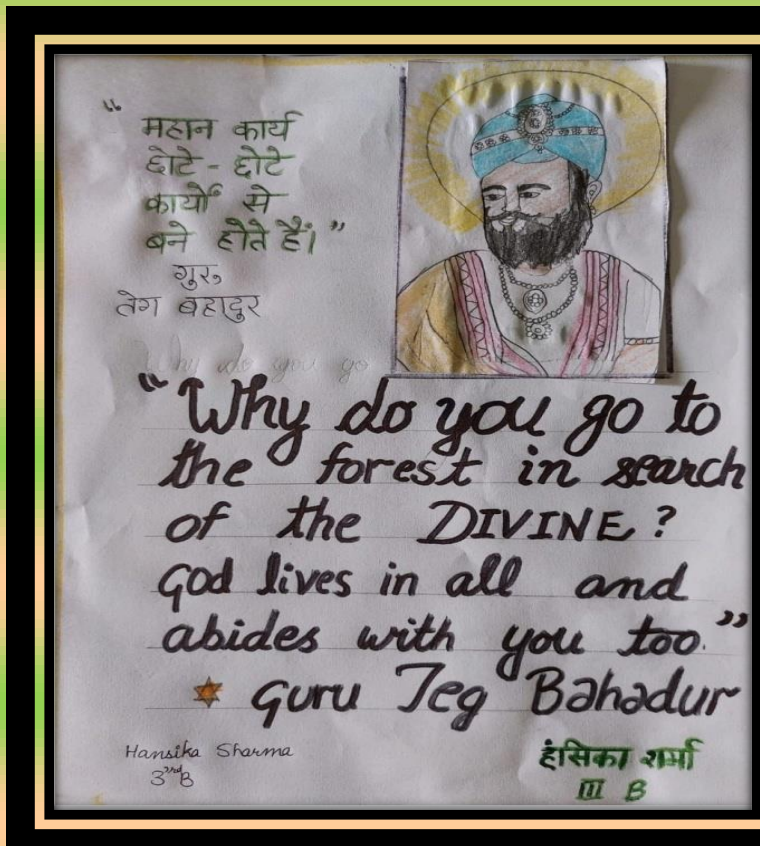 “ महान कार्य
छोटे - छोटे
कार्यों से
बने होते हैं। ”
गुरु
तेग बहादुर
Why do you go
“Why do you go to
the forest in search
of the DIVINE ?
God lives in all and
abides with you too.”
Guru Teg Bahadur
Hansika Sharma
3rd B
हंसिका शर्मा
III B